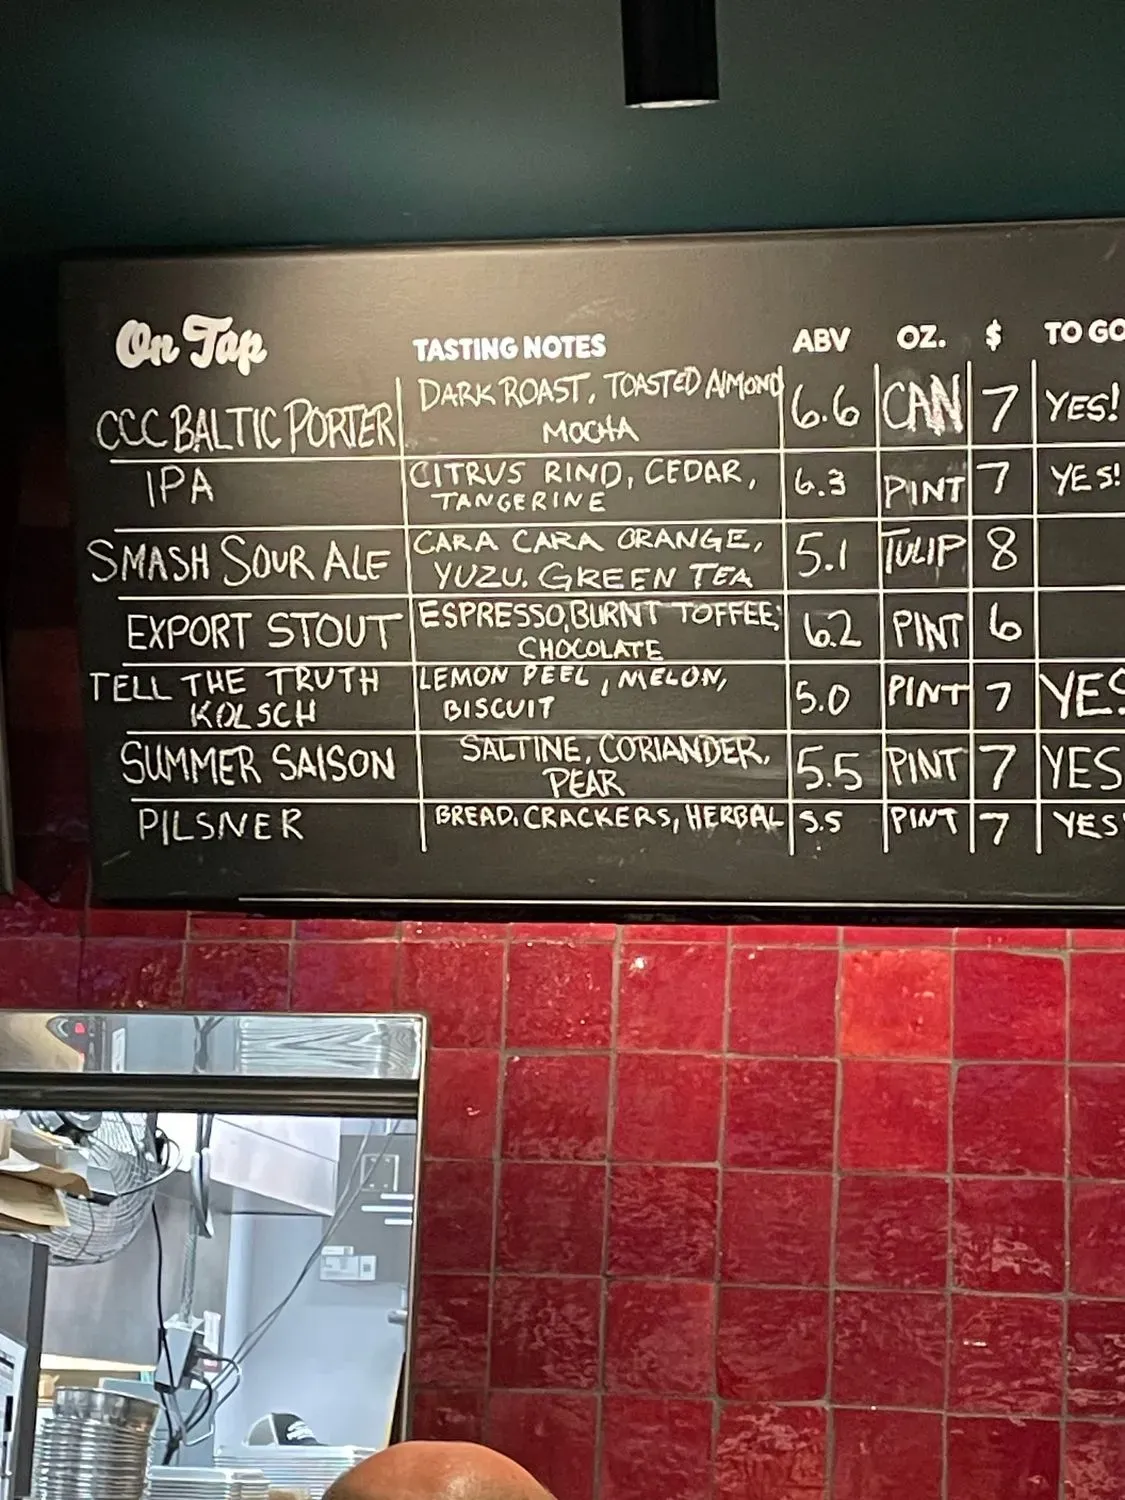 On Tap TASTING NOTES ABV OZ. $ TO GO
CCC BALTIC PORTER DARK ROAST, TOASTED ALMOND 6.6 CAN 7 YES!
MOCHA
IPA CITRUS RIND, CEDAR, 6.3 PINT 7 YES!
TANGERINE
SMASH SOUR ALE CARA CARA ORANGE, 5.1 TULIP 8
YUZU, GREEN TEA
EXPORT STOUT ESPRESSO, BURNT TOFFEE, 6.2 PINT 6
CHOCOLATE
TELL THE TRUTH LEMON PEEL, MELON, 5.0 PINT 7 YES
KOLSCH BISCUIT
SUMMER SAISON SALTINE, CORIANDER, 5.5 PINT 7 YES
PEAR
PILSNER BREAD, CRACKERS, HERBAL 5.5 PINT 7 YES